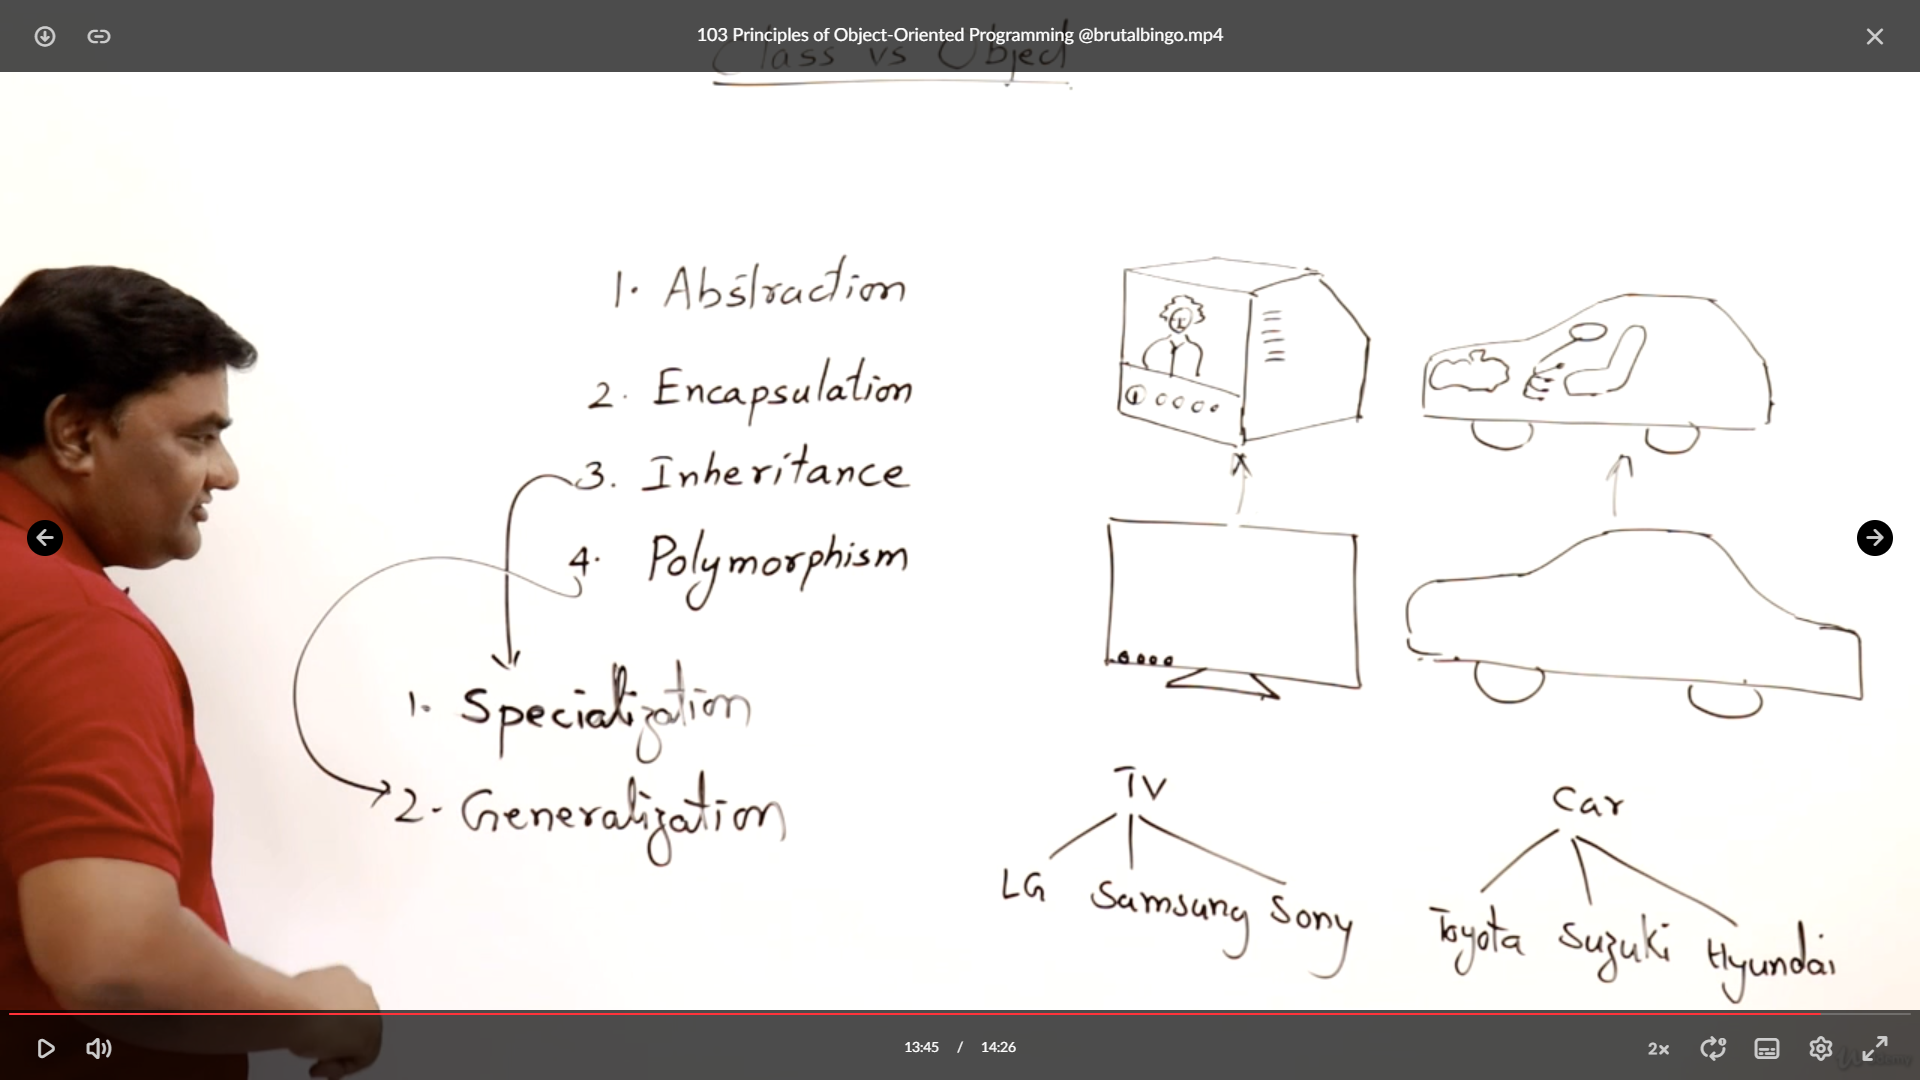 103 Principles of Object-Oriented Programming @brutalbingo.mp4
Class vs Object
1. Abstraction
2. Encapsulation
3. Inheritance
4. Polymorphism
1. Specialization
2- Generalization
TV
LG Samsung Sony
Car
Toyota Suzuki Hyundai
13:45 / 14:26
2x